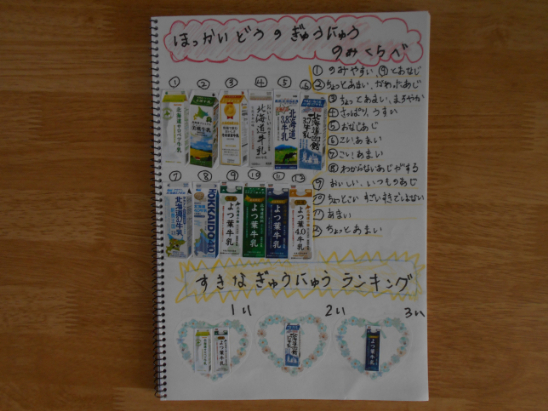 ほっかいどうのぎゅうにゅう
のみくらべ
① のみやすい ⑨とおなじ
② ちょっとあまい、かわったあじ
③ ちょっとあまい、まろやか
④ さっぱり、うすい
⑤ おなじあじ
⑥ こい、あまい
⑦ こい、あまい
⑧ わからないあじがする
⑨ おいしい、いつものあじ
⑩ ちょっとこい すごいすきではない
⑪ あまい
⑫ ちょっとあまい
① ② ③ ④ ⑤ ⑥
北海道牛乳
⑦ ⑧ ⑨ ⑩ ⑪ ⑫
北海道牛乳
HOKKAIDO4.0
よつ葉牛乳
よつ葉牛乳
よつ葉牛乳
よつ葉4.0牛乳
すきなぎゅうにゅうランキング
1い 2い 3い
よつ葉牛乳